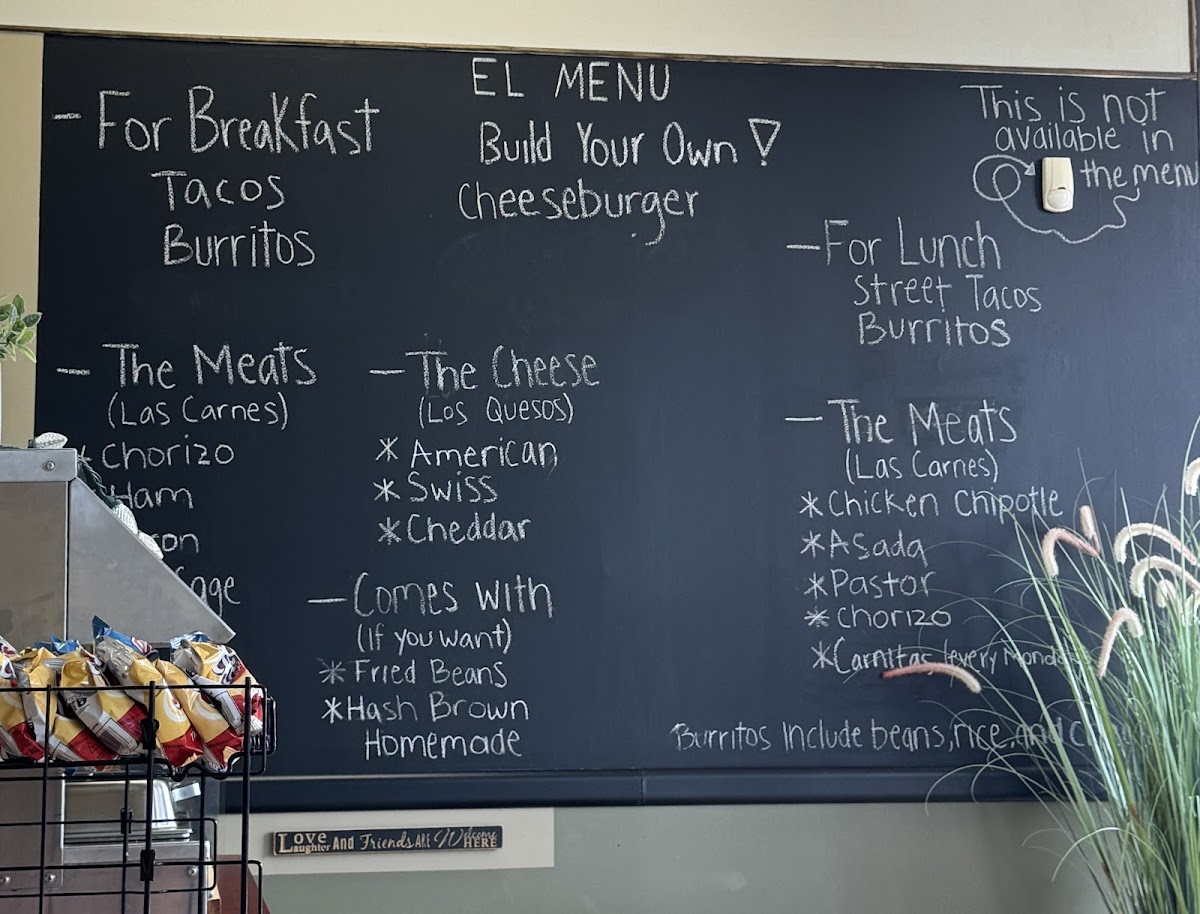 EL MENU
Build Your Own !
Cheeseburger
- For Breakfast
Tacos
Burritos
This is not
available in
the menu
- For Lunch
Street Tacos
Burritos
- The Meats
(Las Carnes)
* Chorizo
Ham
- The Cheese
(Los Quesos)
* American
* Swiss
* Cheddar
- Comes With
(If you want)
* Fried Beans
* Hash Brown
Homemade
- The Meats
(Las Carnes)
* Chicken Chipotle
* Asada
* Pastor
* Chorizo
* Carnitas (every Monday
Burritos Include beans, rice, and
Love Laughter And Friends Are Welcome Here